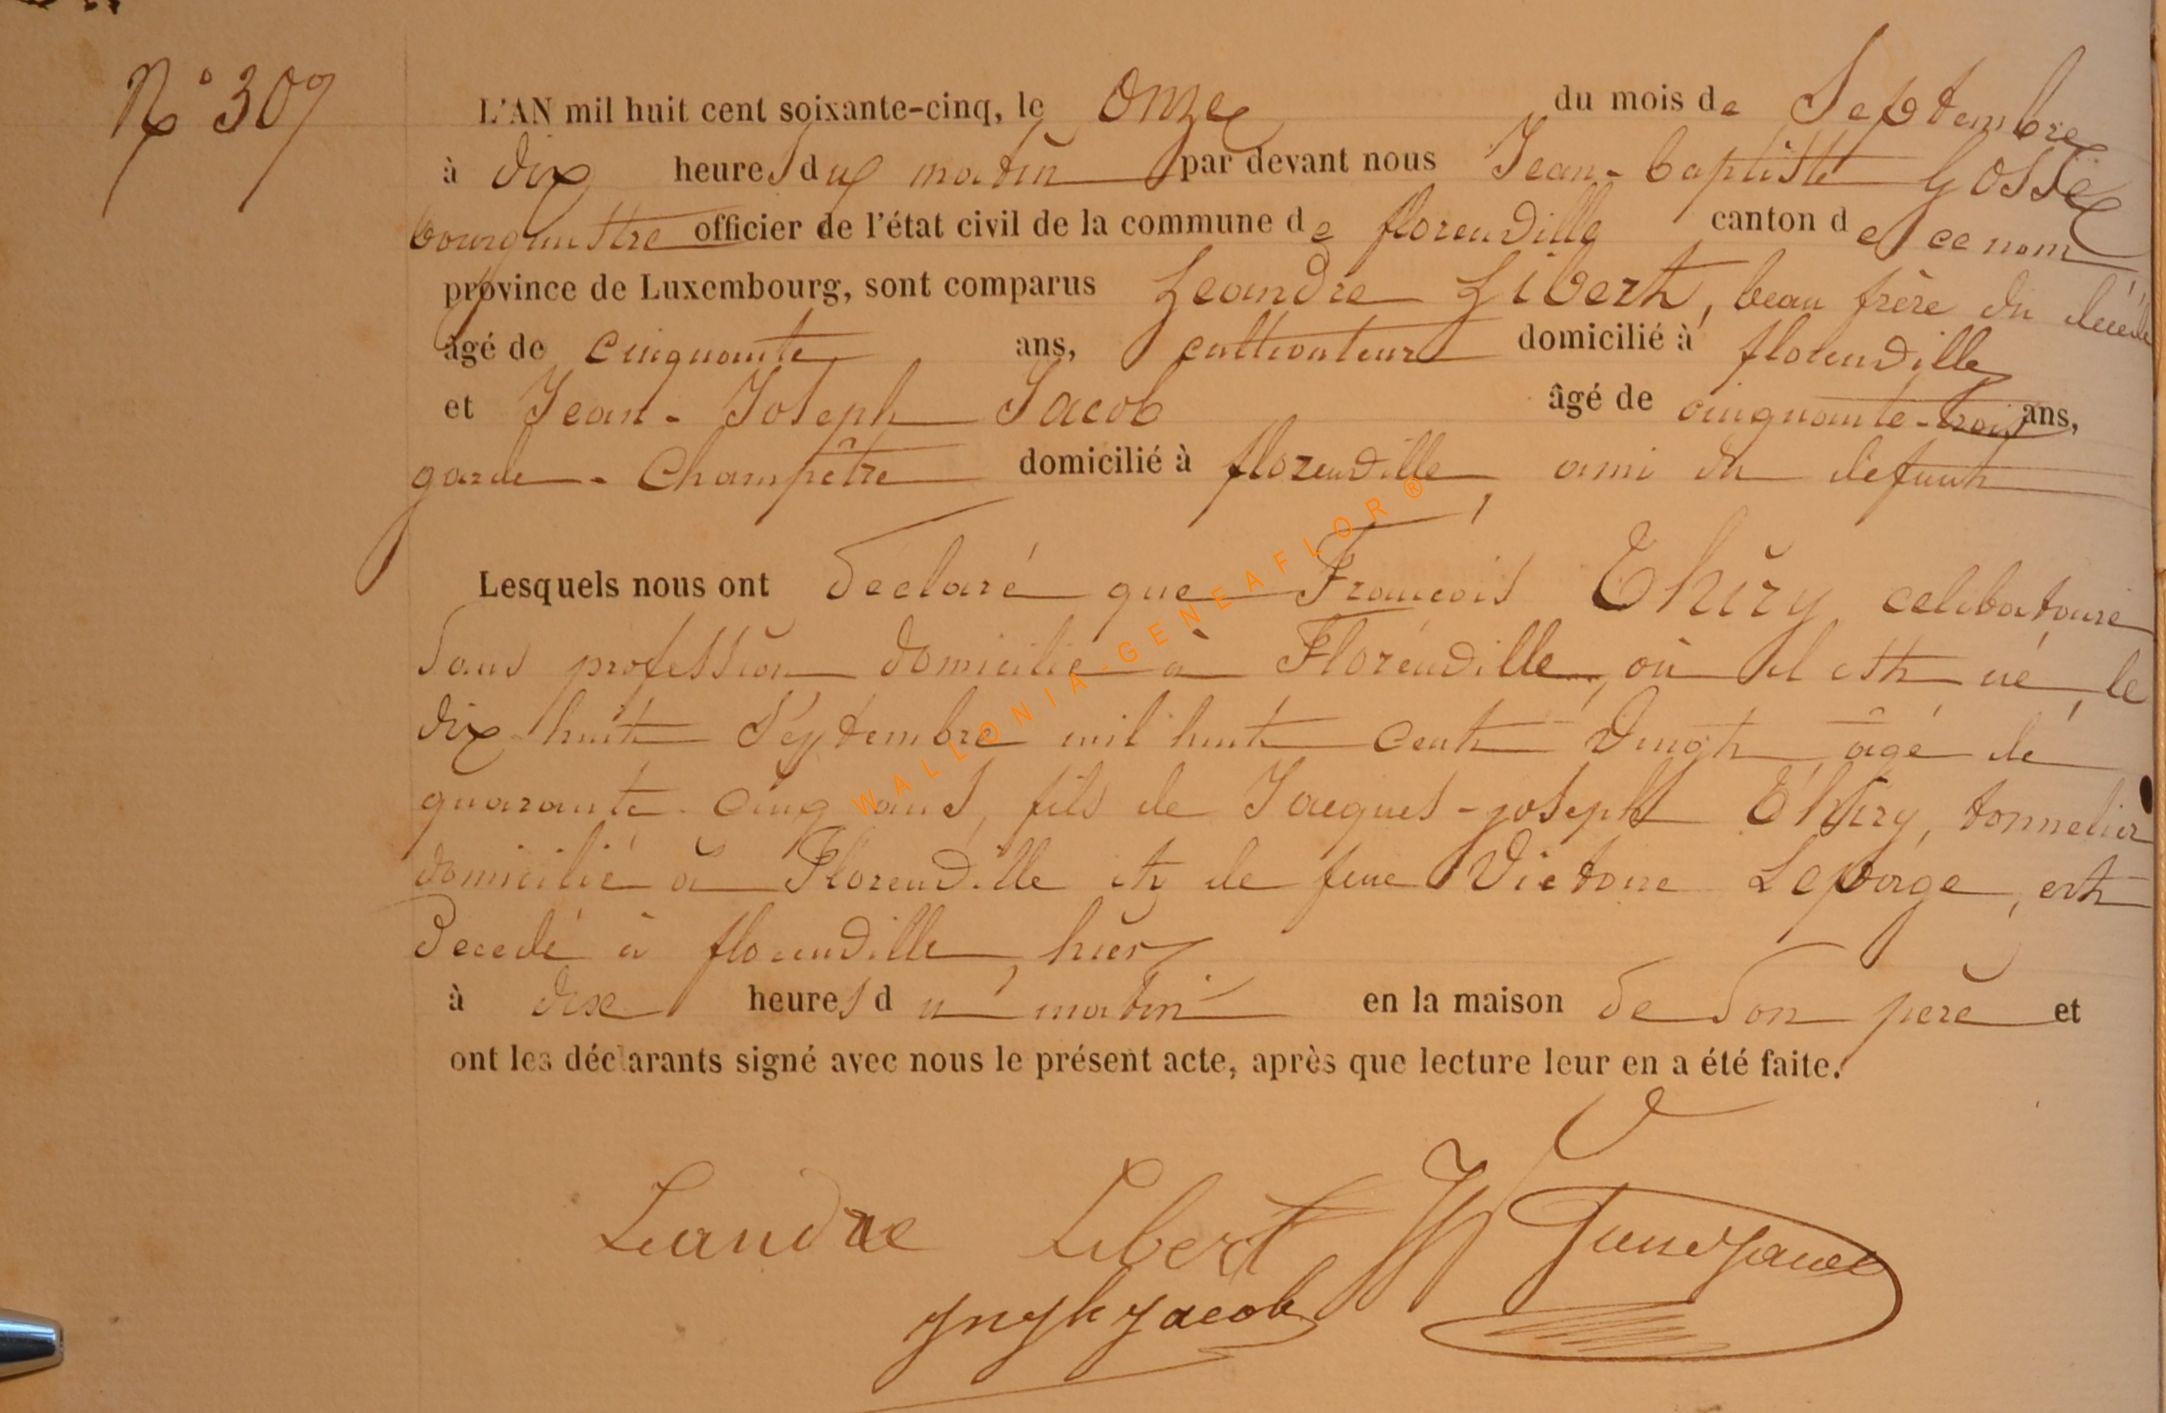 N° 307
L'AN mil huit cent soixante-cinq, le onze du mois de Septembre
à dix heures du matin par devant nous Jean-baptiste Gosse
bourgmestre officier de l'état civil de la commune de florenville canton de ce nom
province de Luxembourg, sont comparus Leandre Libert, beau frère du décédé
âgé de cinquante ans, cultivateur domicilié à florenville
et Jean-Joseph Jacob âgé de cinquante-trois ans,
garde-Champêtre domicilié à florenville, ami du defunt
Lesquels nous ont declaré que François Thiry celibataire
sans profession domicilié à Florenville, où il est né, le
dix-huit Septembre mil huit cent vingt âgé de
quarante-cinq ans, fils de Jacques-joseph Thiry, tonnelier
domicilié à Florenville et de feue Victoire Lepage, est
decedé à florenville, hier
à dix heures du matin en la maison de son père et
ont les déclarants signé avec nous le présent acte, après que lecture leur en a été faite.
Leandre Libert
Jacob
WALLONIA-GENEAFLOR®